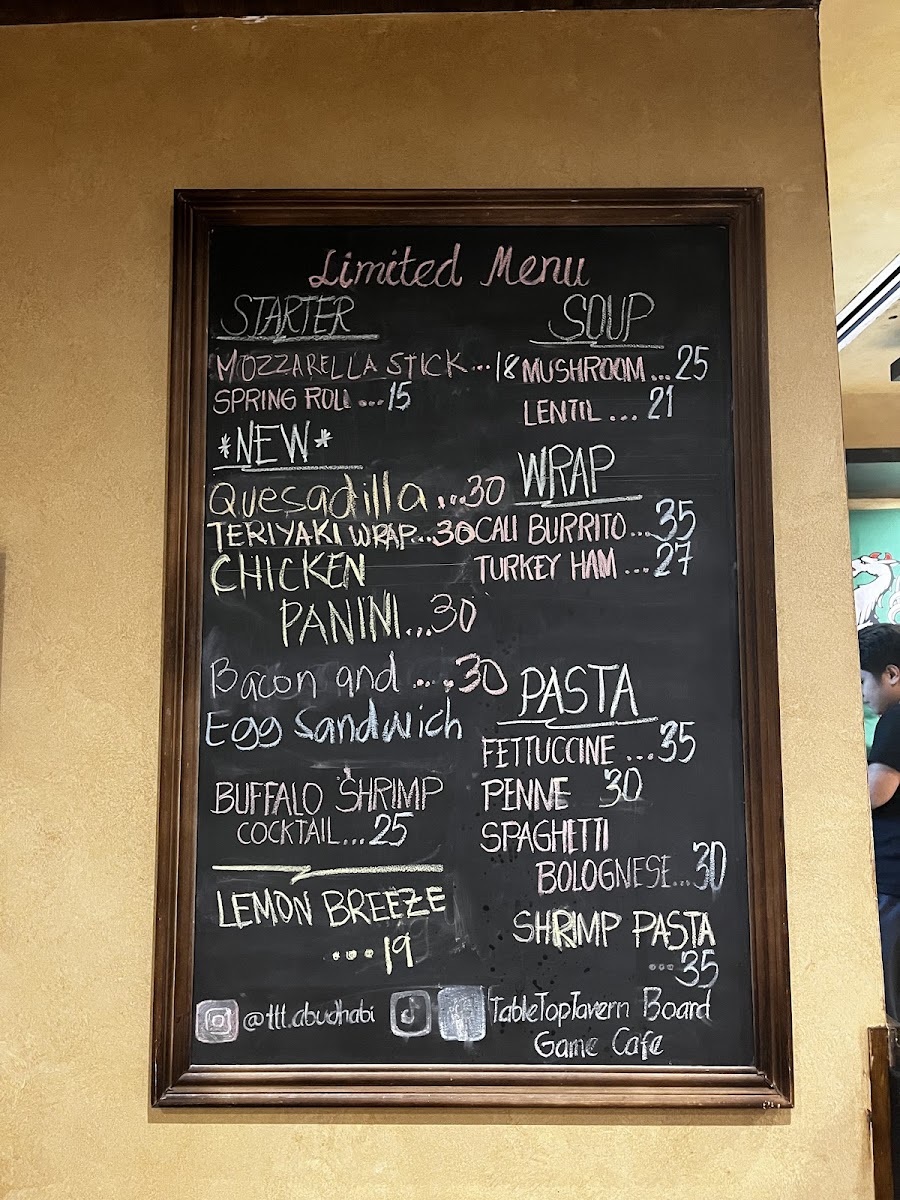 Limited Menu
STARTER
MOZZARELLA STICK...18
SPRING ROLL...15
*NEW*
Quesadilla...30
TERIYAKI WRAP...30
CHICKEN
PANINI...30
Bacon and ....30
Egg Sandwich
BUFFALO SHRIMP
COCKTAIL...25
LEMON BREEZE
....19
SOUP
MUSHROOM...25
LENTIL...21
WRAP
CALI BURRITO...35
TURKEY HAM...27
PASTA
FETTUCCINE...35
PENNE 30
SPAGHETTI
BOLOGNESE...30
SHRIMP PASTA
...35
@ttt.abudhabi
TableTopTavern Board
Game Cafe